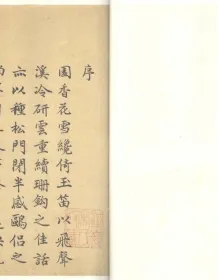 序
國香花雪纔倚玉笛以飛聲
溪冷研雲重續珊鉤之佳話
亦以種松門閉半感鷗侶之